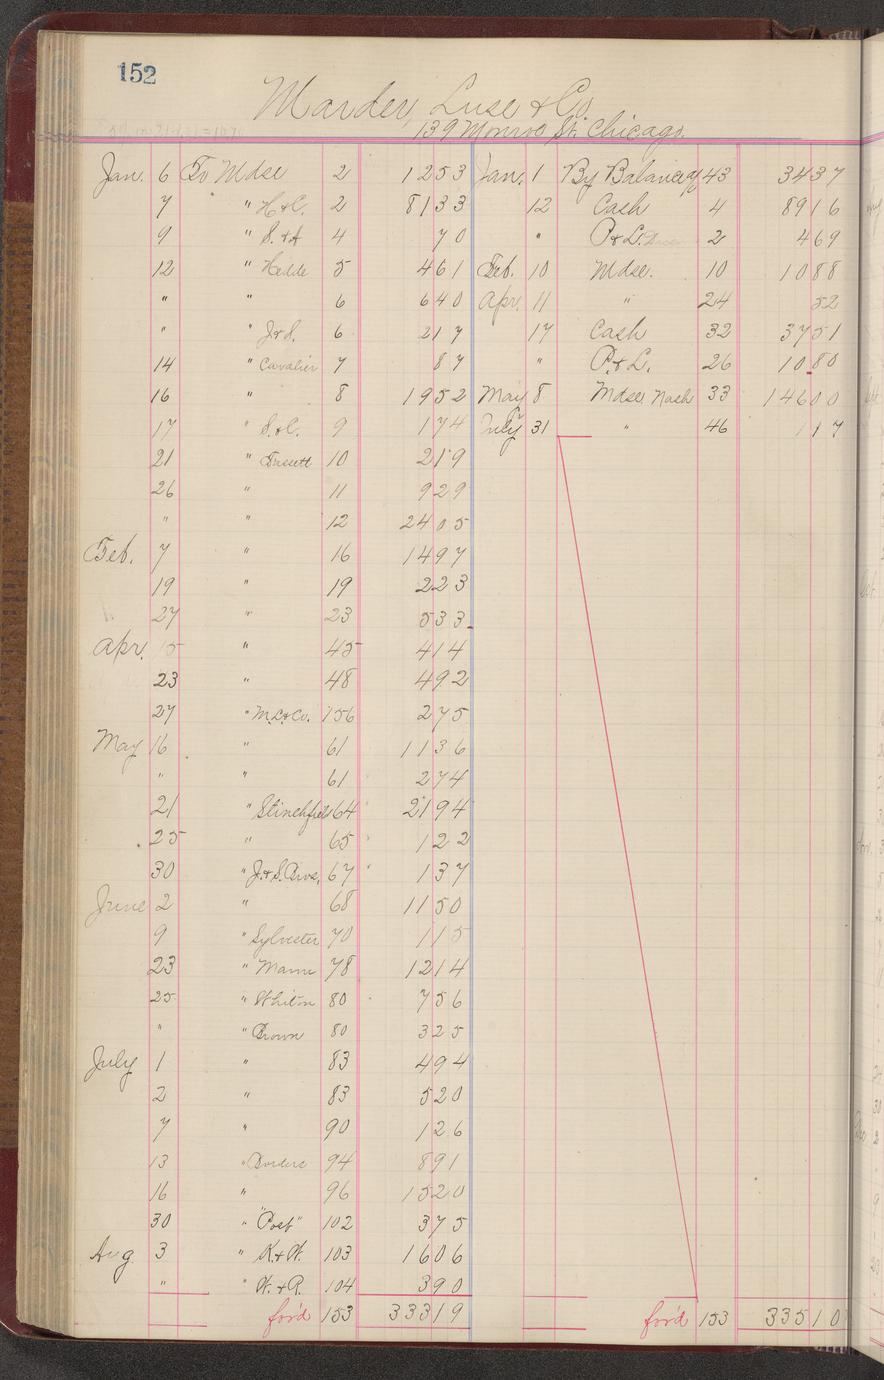 152
Marder, Luse & Co.
139 Monroe St. Chicago.
Jan. 6 To Mdse 2 1253 Jan. 1 By Balance 43 3437
7 " H&C. 2 8133 12 Cash 4 8916
9 " S.&A 4 70 " P&L. 2 469
12 " 5 461 Feb. 10 Mdse. 10 1088
" " 6 640 Apr. 11 " 24 52
" " J&S. 6 217 17 Cash 32 3751
14 " Cavalier 7 87 " P.&L. 26 1080
16 " 8 1952 May 8 Mdse Nash 33 14600
17 " S.&C. 9 174 July 31 " 46 117
21 " 10 219
26 " 11 929
" " 12 2405
Feb. 7 " 16 1497
19 " 19 223
27 " 23 533
Apr. 15 " 45 414
23 " 48 492
27 " M.L&Co. 156 275
May 16 " 61 1136
" " 61 274
21 " Stinchfield 64 2194
25 " 65 122
30 " J.&S. Bros. 67 137
June 2 " 68 1150
9 " Sylvester 70 115
23 " Mann 78 1214
25 " Whiton 80 756
" " Brown 80 325
July 1 " 83 494
2 " 83 520
7 " 90 126
13 " Borders 94 891
16 " 96 1520
30 " "Post" 102 375
Aug 3 " K.&W. 103 1606
" " W.&P. 104 390
for'd 153 33319 for'd 153 33510